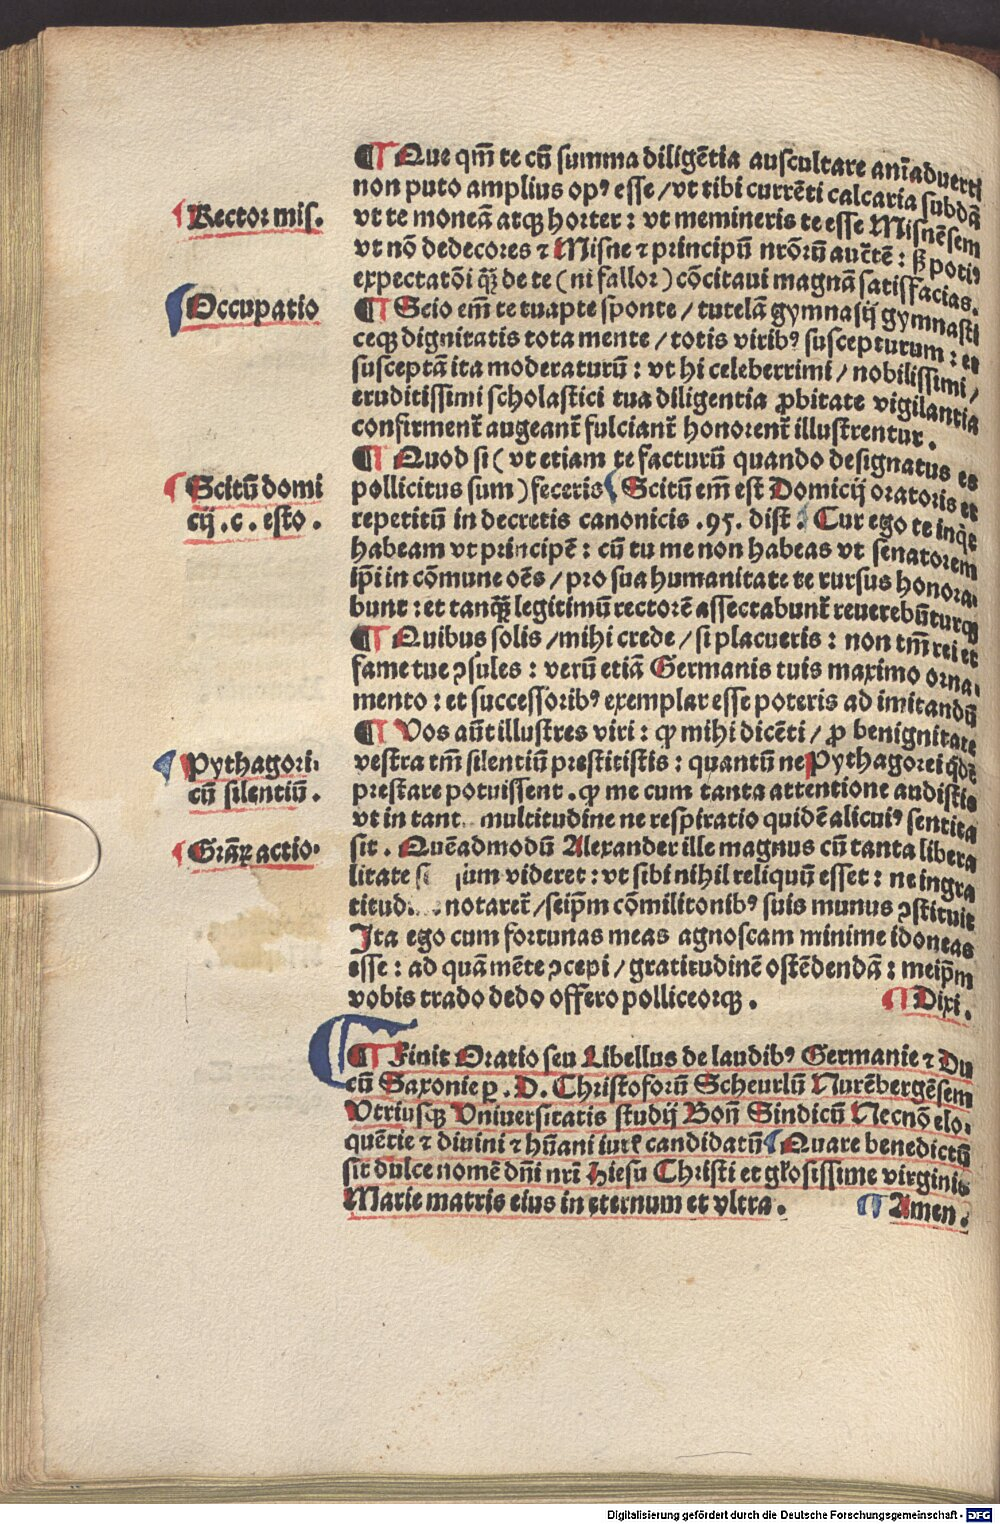 ¶ Que qm̄ te cū summa diligētia auscultare aīaduerti
non puto amplius opꝰ esse / vt tibi currēti calcaria subdā
Rector mis.
vt te moneā atqꝫ horter : vt memineris te esse Misnēsem
vt nō dedecores ⁊ Misne ⁊ principū nrōrū auctē : sꝫ potiꝰ
expectatōi qꝫ de te ( ni fallor ) cōcitaui magnā satisfacias.
Occupatio
¶ Scio em̄ te tuapte sponte / tutelā gymnasij gymnasti
ceqꝫ dignitatis tota mente / totis viribꝰ suscepturum : et
susceptā ita moderaturū : vt hi celeberrimi / nobilissimi /
eruditissimi scholastici tua diligentia ꝓbitate vigilantia
confirment᷑ augeant᷑ fulciant᷑ honorent᷑ illustrentur .
¶ Quod si ( vt etiam te facturū quando designatus es
Scitū domi
cij .c. esto .
pollicitus sum ) feceris Scitū em̄ est Domicij oratoris et
repetitū in decretis canonicis .95. dist : Cur ego te inqͥt
habeam vt principē : cū tu me non habeas vt senatorem
ip̄i in cōmune oēs / pro sua humanitate te rursus honora-
bunt : et tanqꝫ legitimū rectorē assectabunt᷑ reuerebūturqꝫ
¶ Quibus solis / mihi crede / si placueris : non tm̄ rei et
fame tue ꝯsules : verū etiā Germanis tuis maximo orna-
mento : et successoribꝰ exemplar esse poteris ad imitandū
¶ Vos aūt illustres viri : ꝙ mihi dicēti / ꝓ benignitate
Pythagori-
cū silentiū .
vestra tm̄ silentiū prestitistis : quantū ne Pythagorei qͥdē
prestare potuissent . ꝙ me cum tanta attentione audistis
vt in tant multitudine ne respiratio quidē alicuiꝰ sentita
Grāꝝ actio.
sit . Quēadmodū Alexander ille magnus cū tanta libera
litate s um videret : vt sibi nihil reliquū esset : ne ingra
titud notaret᷑ / seip̄m cōmilitonibꝰ suis munus ꝯstituit
Ita ego cum fortunas meas agnoscam minime idoneas
esse : ad quā mēte ꝯcepi / gratitudinē ostēdendā : meip̄m
vobis trado dedo offero polliceorqꝫ . ¶ Dixi .
¶ Finit Oratio seu Libellus de laudibꝰ Germanie ⁊ Du
cū Saxonie ꝑ . D. Christoforū Scheurlū Nurēbergēsem
Vtriusqꝫ Vniuersitatis studij Bon̄ Sindicū Necnō elo-
quētie ⁊ diuini ⁊ hūani iurꝭ candidatū Quare benedictū
sit dulce nomē dn̄i nr̄i Hiesu Christi et gl̄osissime virginis
Marie matris eius in eternum et vltra . ¶ Amen .
Digitalisierung gefördert durch die Deutsche Forschungsgemeinschaft - DFG